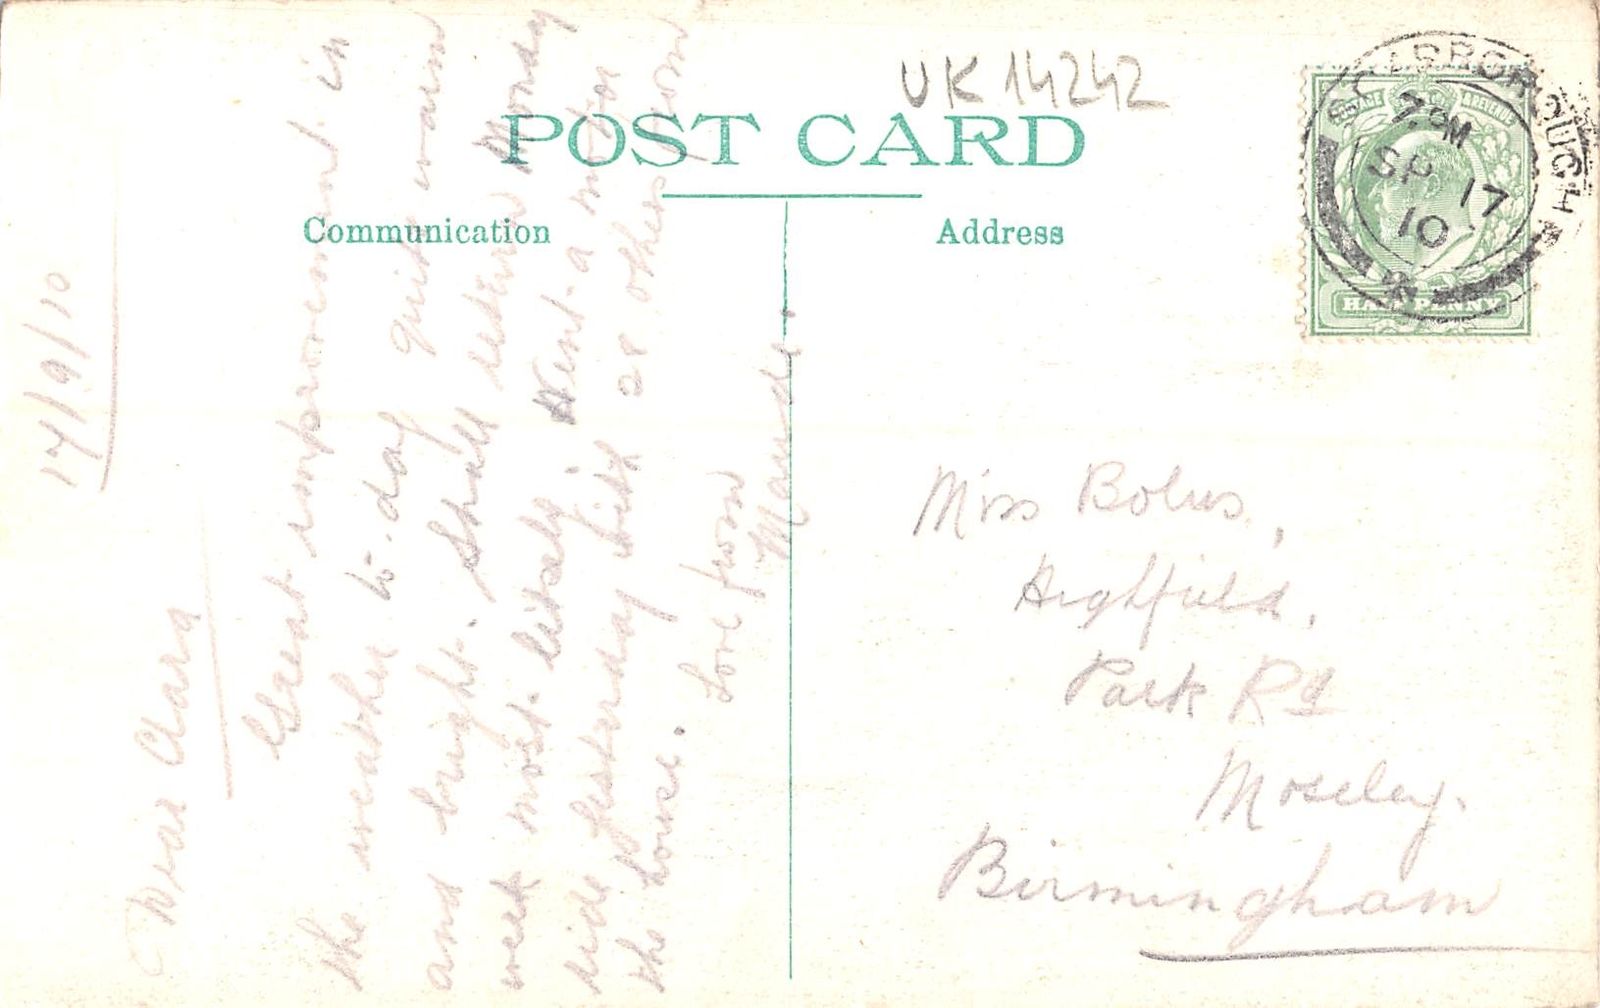 UK 14242
POST CARD
Communication
Address
SCARBOROUGH
7 PM
SP 17
10
POSTAGE & REVENUE
HALFPENNY
17/9/10
Dear Clara
Great improvement in
the weather to-day quite warm
and bright. Shall return Monday
week most likely. Went a motor
ride yesterday with 28 others from
the house. Love from
Maude.
Miss Bolus,
Highfield,
Park Rd
Moseley.
Birmingham